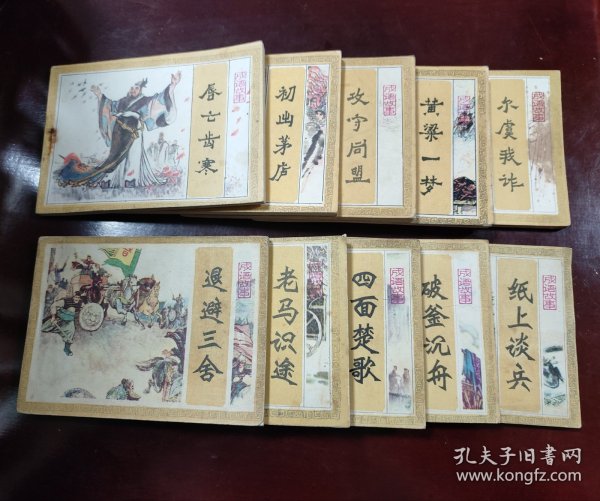 成语故事
唇亡齿寒
成语故事
初出茅庐
成语故事
攻守同盟
成语故事
黄粱一梦
成语故事
尔虞我诈
成语故事
退避三舍
成语故事
老马识途
成语故事
四面楚歌
成语故事
破釜沉舟
成语故事
纸上谈兵
孔夫子旧书网
www.kongfz.com